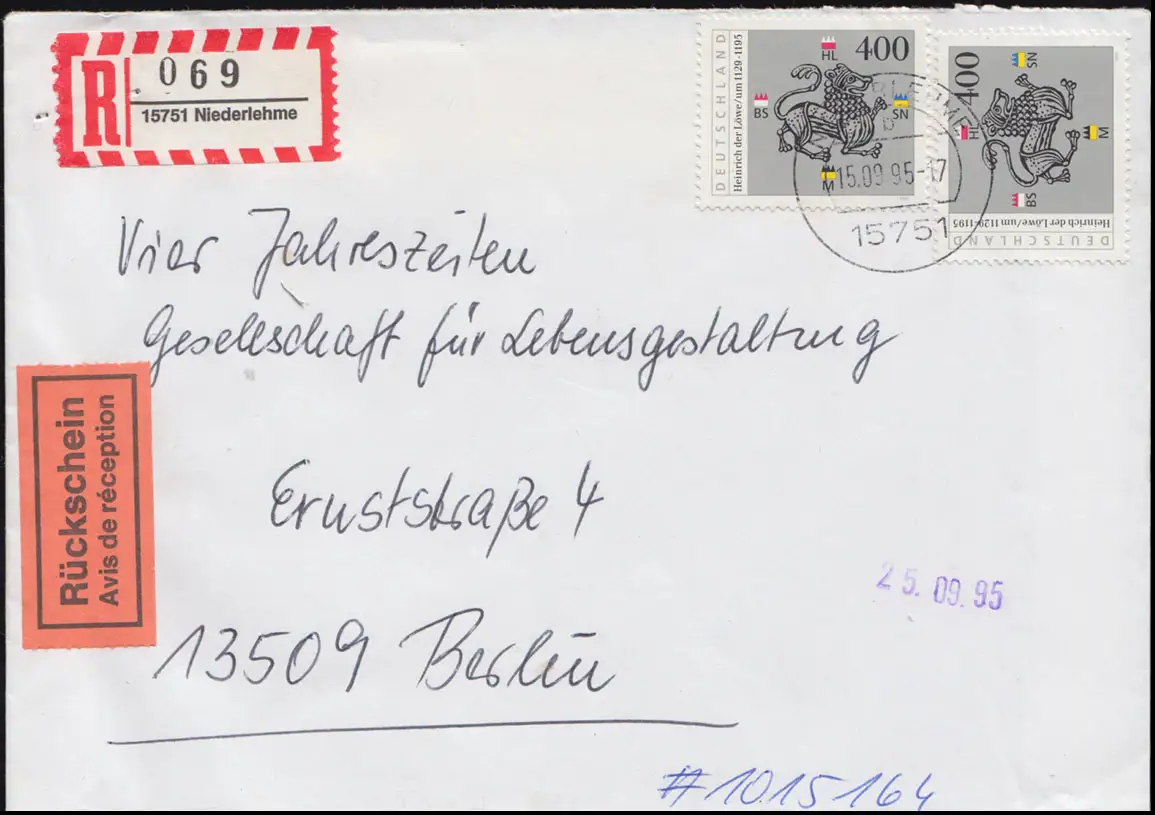 R
069
15751 Niederlehme
DEUTSCHLAND
Heinrich der Löwe/um 1129-1195
400
HL
BS
SN
M
DEUTSCHLAND
Heinrich der Löwe/um 1129-1195
400
HL
BS
SN
M
b
15.09.95-17
15751
Vier Jahreszeiten
Gesellschaft für Lebensgestaltung
Rückschein
Avis de réception
Ernststraße 4
25.09.95
13509 Berlin
#1015164